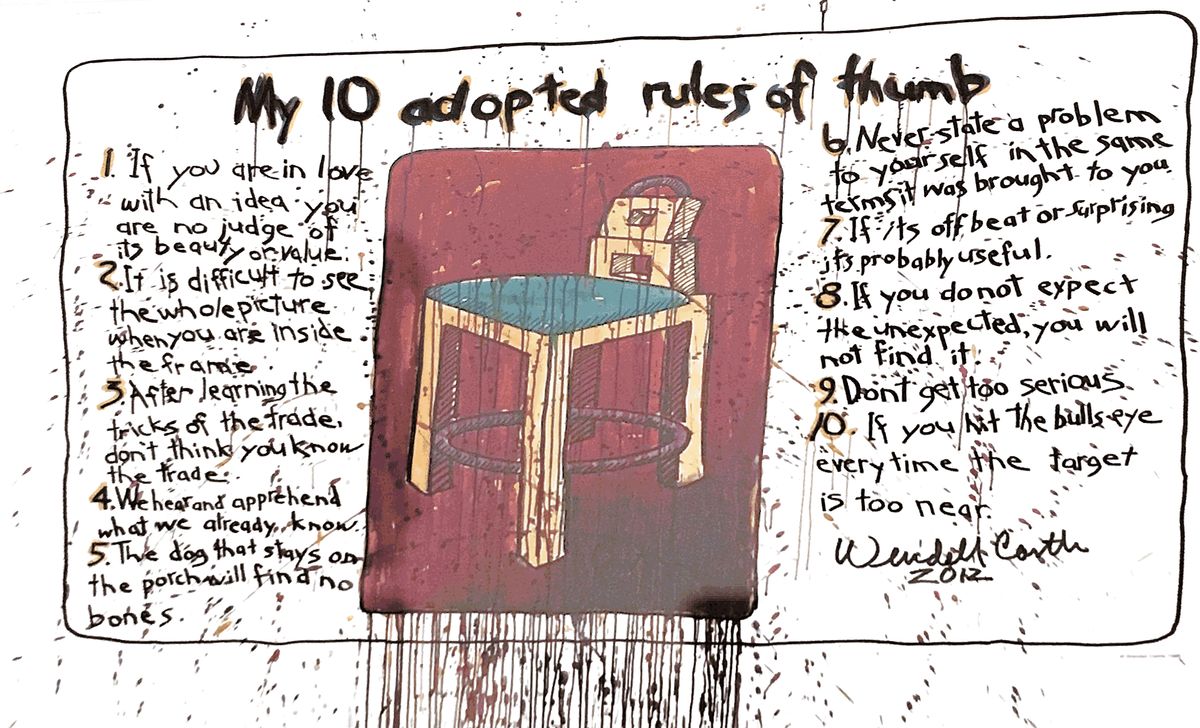 My 10 adopted rules of thumb
1. If you are in love
with an idea you
are no judge of
its beauty or value.
2. It is difficult to see
the whole picture
when you are inside
the frame.
3. After learning the
tricks of the trade,
don't think you know
the trade.
4. We hear and apprehend
what we already know.
5. The dog that stays on
the porch will find no
bones.
6. Never state a problem
to yourself in the same
terms it was brought to you
7. If its off beat or surprising
its probably useful.
8. If you do not expect
the unexpected, you will
not find it.
9. Dont get too serious
10. If you hit the bullseye
every time the target
is too near
Wendell Castle
2012